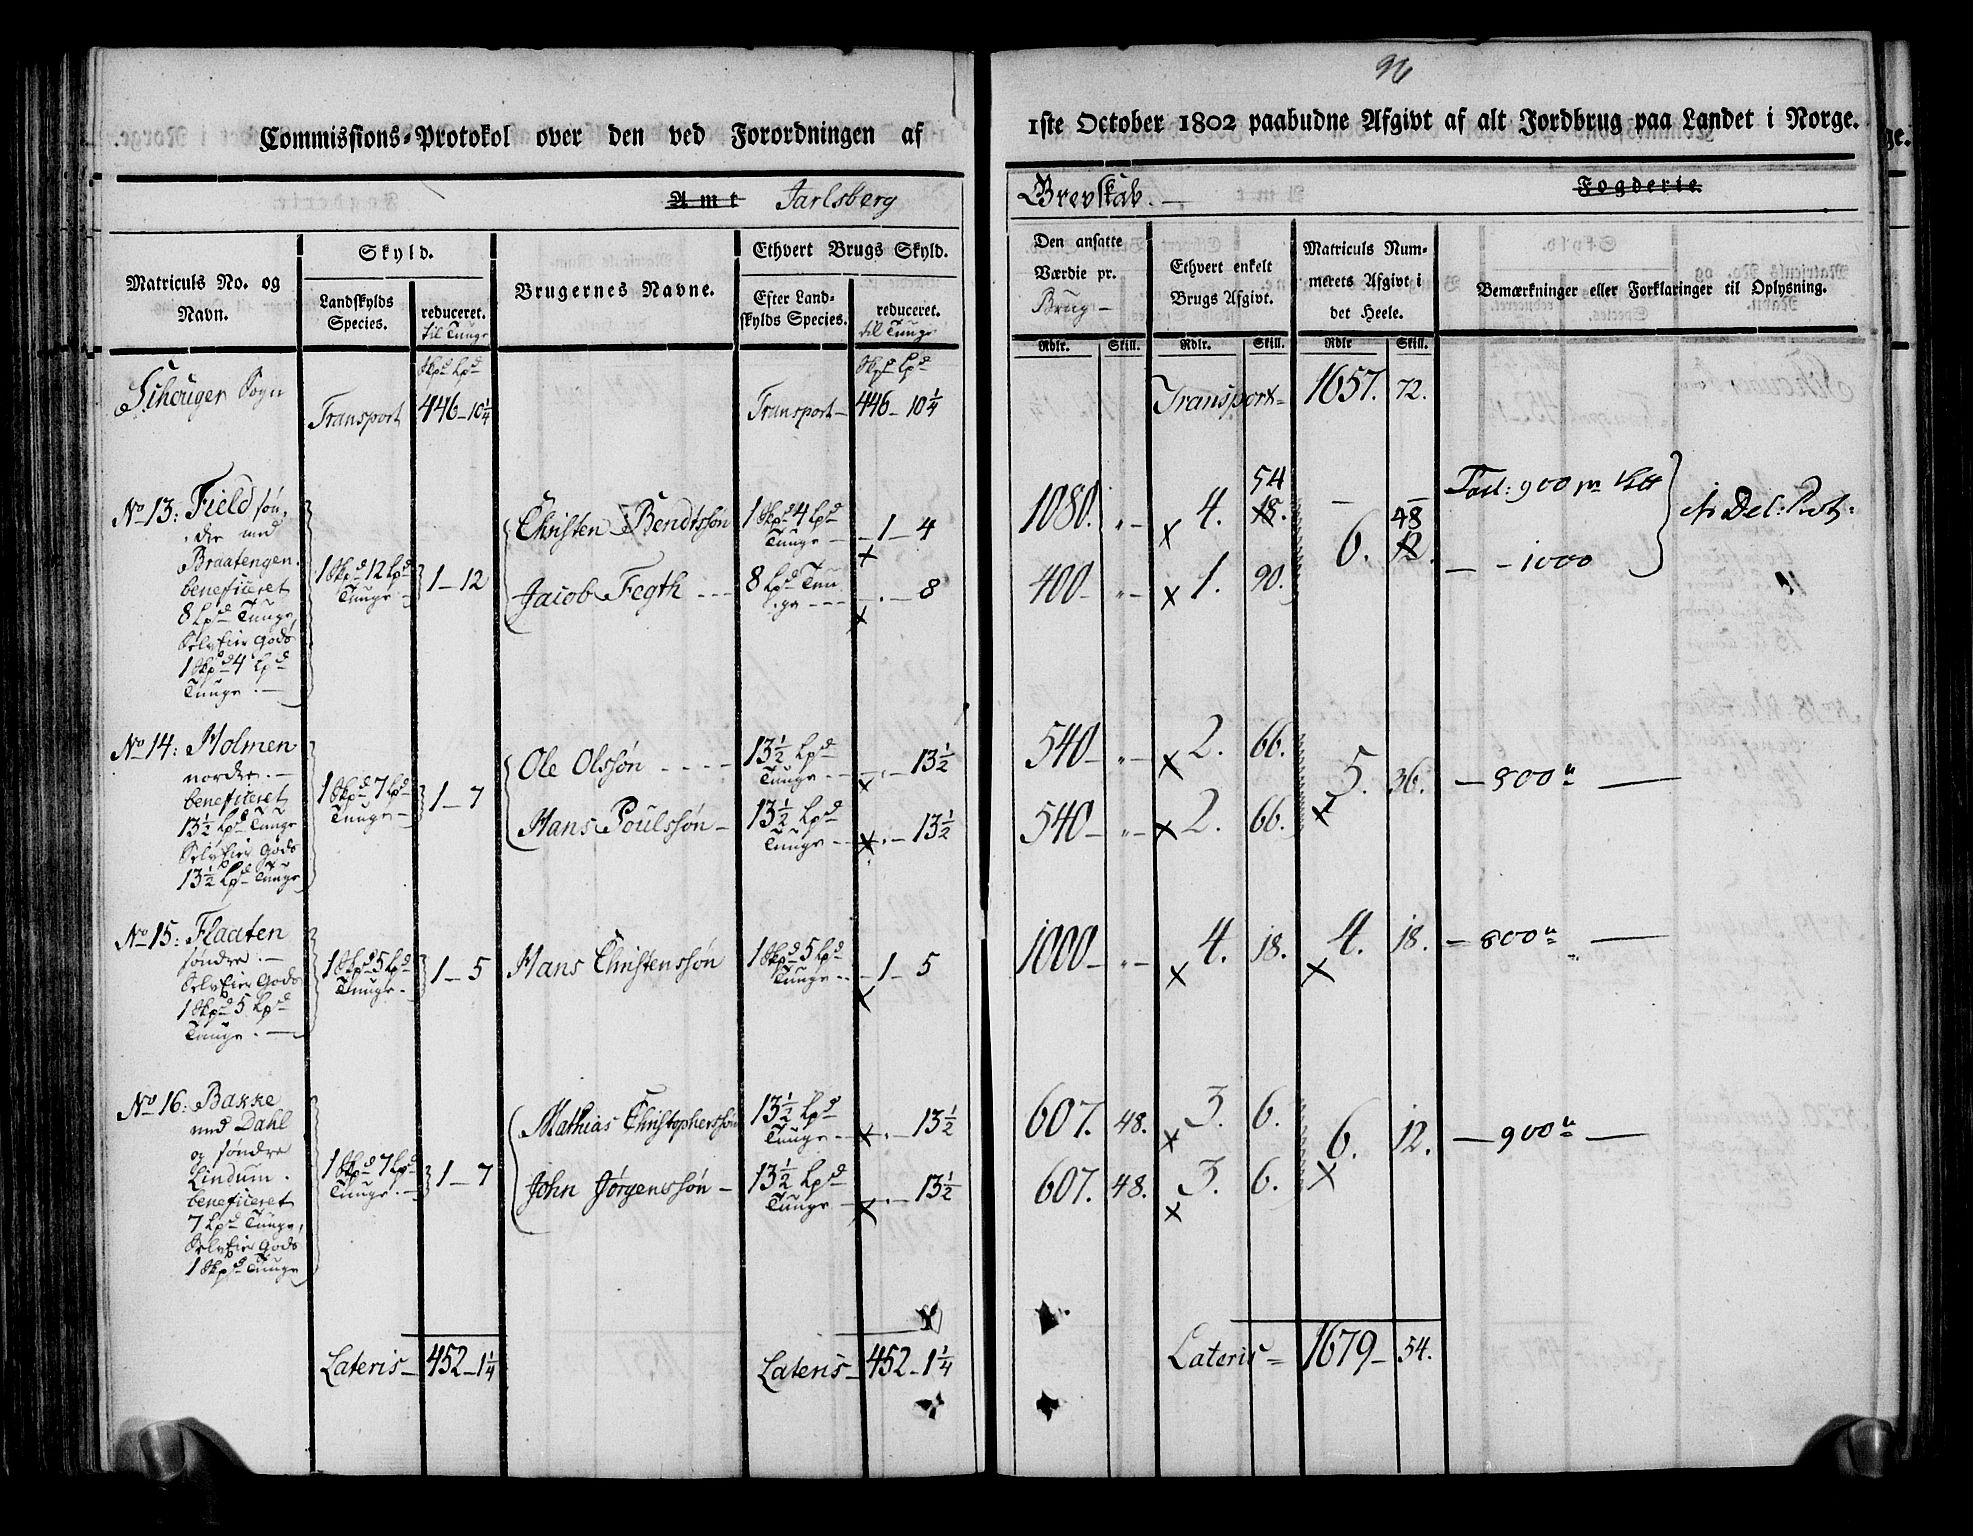 96
Commissions-Protokol over den ved Forordningen af
1ste October 1802 paabudne Afgivt af alt Jordbrug paa Landet i Norge.
Amt Jarlsberg
Grevskab. Fogderie.
Matriculs No. og Navn.
Skyld.
Landskylds Species.
reduceret. til Tunge
Brugernes Navne.
Ethvert Brugs Skyld.
Efter Landskylds Species.
reduceret. til Tunge
Den ansatte Værdie pr. Brug
Ethvert enkelt Brugs Afgivt.
Matriculs Nummerets Afgivt i det Heele.
Bemærkninger eller Forklaringer til Oplysning.
Rdlr. Skill. Rdlr. Skill. Rdlr Skill.
Skpd Lpd Skpd Lpd
Schouger Sogn Transport 446 - 10 1/4 Transport - 446 - 10 1/4 Transport - 1657. 72.
No 13: Field søn-
dre med
Braatengen.
beneficeret
8 Lpd Tunge,
SelvEier Gods
1 Skpd 4 Lpd
Tunge. -
1 Skpd 12 Lpd Tunge - 1 - 12
Christen Bendtssøn 1 Skpd 4 Lpd Tunge - 1 - 4 1080. " - x 4. 54 18.
Jacob Fegth - - - 8 Lpd Tunge - - - . - 8 400 - " - x 1. 90.
6. 48 12.
900
- - 1000
No 14: Holmen
nordre. -
beneficeret
13 1/2 Lpd Tunge
SelvEier Gods
13 1/2 Lpd Tunge
1 Skpd 7 Lpd Tunge - 1 - 7
Ole Olssøn - - - - 13 1/2 Lpd Tunge - - . - 13 1/2 540 - " - x 2. 66.
Hans Poulssøn - 13 1/2 Lpd Tunge - x . - 13 1/2 540 - " - x 2. 66.
5. 36. - 800 " -
No 15: Flaaten
søndre. -
SelvEier Gods
1 Skpd 5 Lpd
Tunge. -
1 Skpd 5 Lpd Tunge - 1 - 5
Hans Christenssøn 1 Skpd 5 Lpd Tunge - - 1 - 5 1000 - " - x 4. 18. 4. 18. - 800 " -
No 16: Bakke
med Dahl
og søndre
Lindum.
beneficeret
7 Lpd Tunge,
SelvEier Gods
1 Skpd Tunge
1 Skpd 7 Lpd Tunge. - 1 - 7
Mathias Christopherssøn 13 1/2 Lpd Tunge - x . - 13 1/2 607. 48. x 3. 6.
John Jørgenssøn - 13 1/2 Lpd Tunge - x . - 13 1/2 607. 48. x 3. 6.
6. 12. - 900 " -
Lateris - 452 - 1 1/4 Lateris - 452 - 1 1/4 Lateris = 1679 - 54.